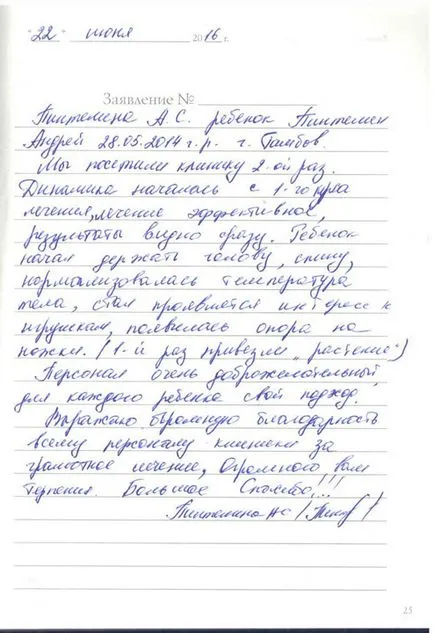 "22" июня 2016 г.
Заявление №
А.С. ребенок
Андрей 28.05.2014 г.р. г. Тамбов.
Мы посетили клинику 2-ой раз.
Динамика началась с 1-го курса
лечения, лечение эффективное,
результаты видно сразу. Ребенок
начал держать голову, спину,
нормализовалась температура
тела, стал проявлятся интерес к
игрушкам, появилась опора на
ножки. (1-й раз привезли „растение")
Персонал очень доброжелательный,
для каждого ребенка свой подход.
Выражаю огромную благодарность
всему персоналу клиники за
грамотное лечение, Огромного вам
терпения. Большое Спасибо!!!
25